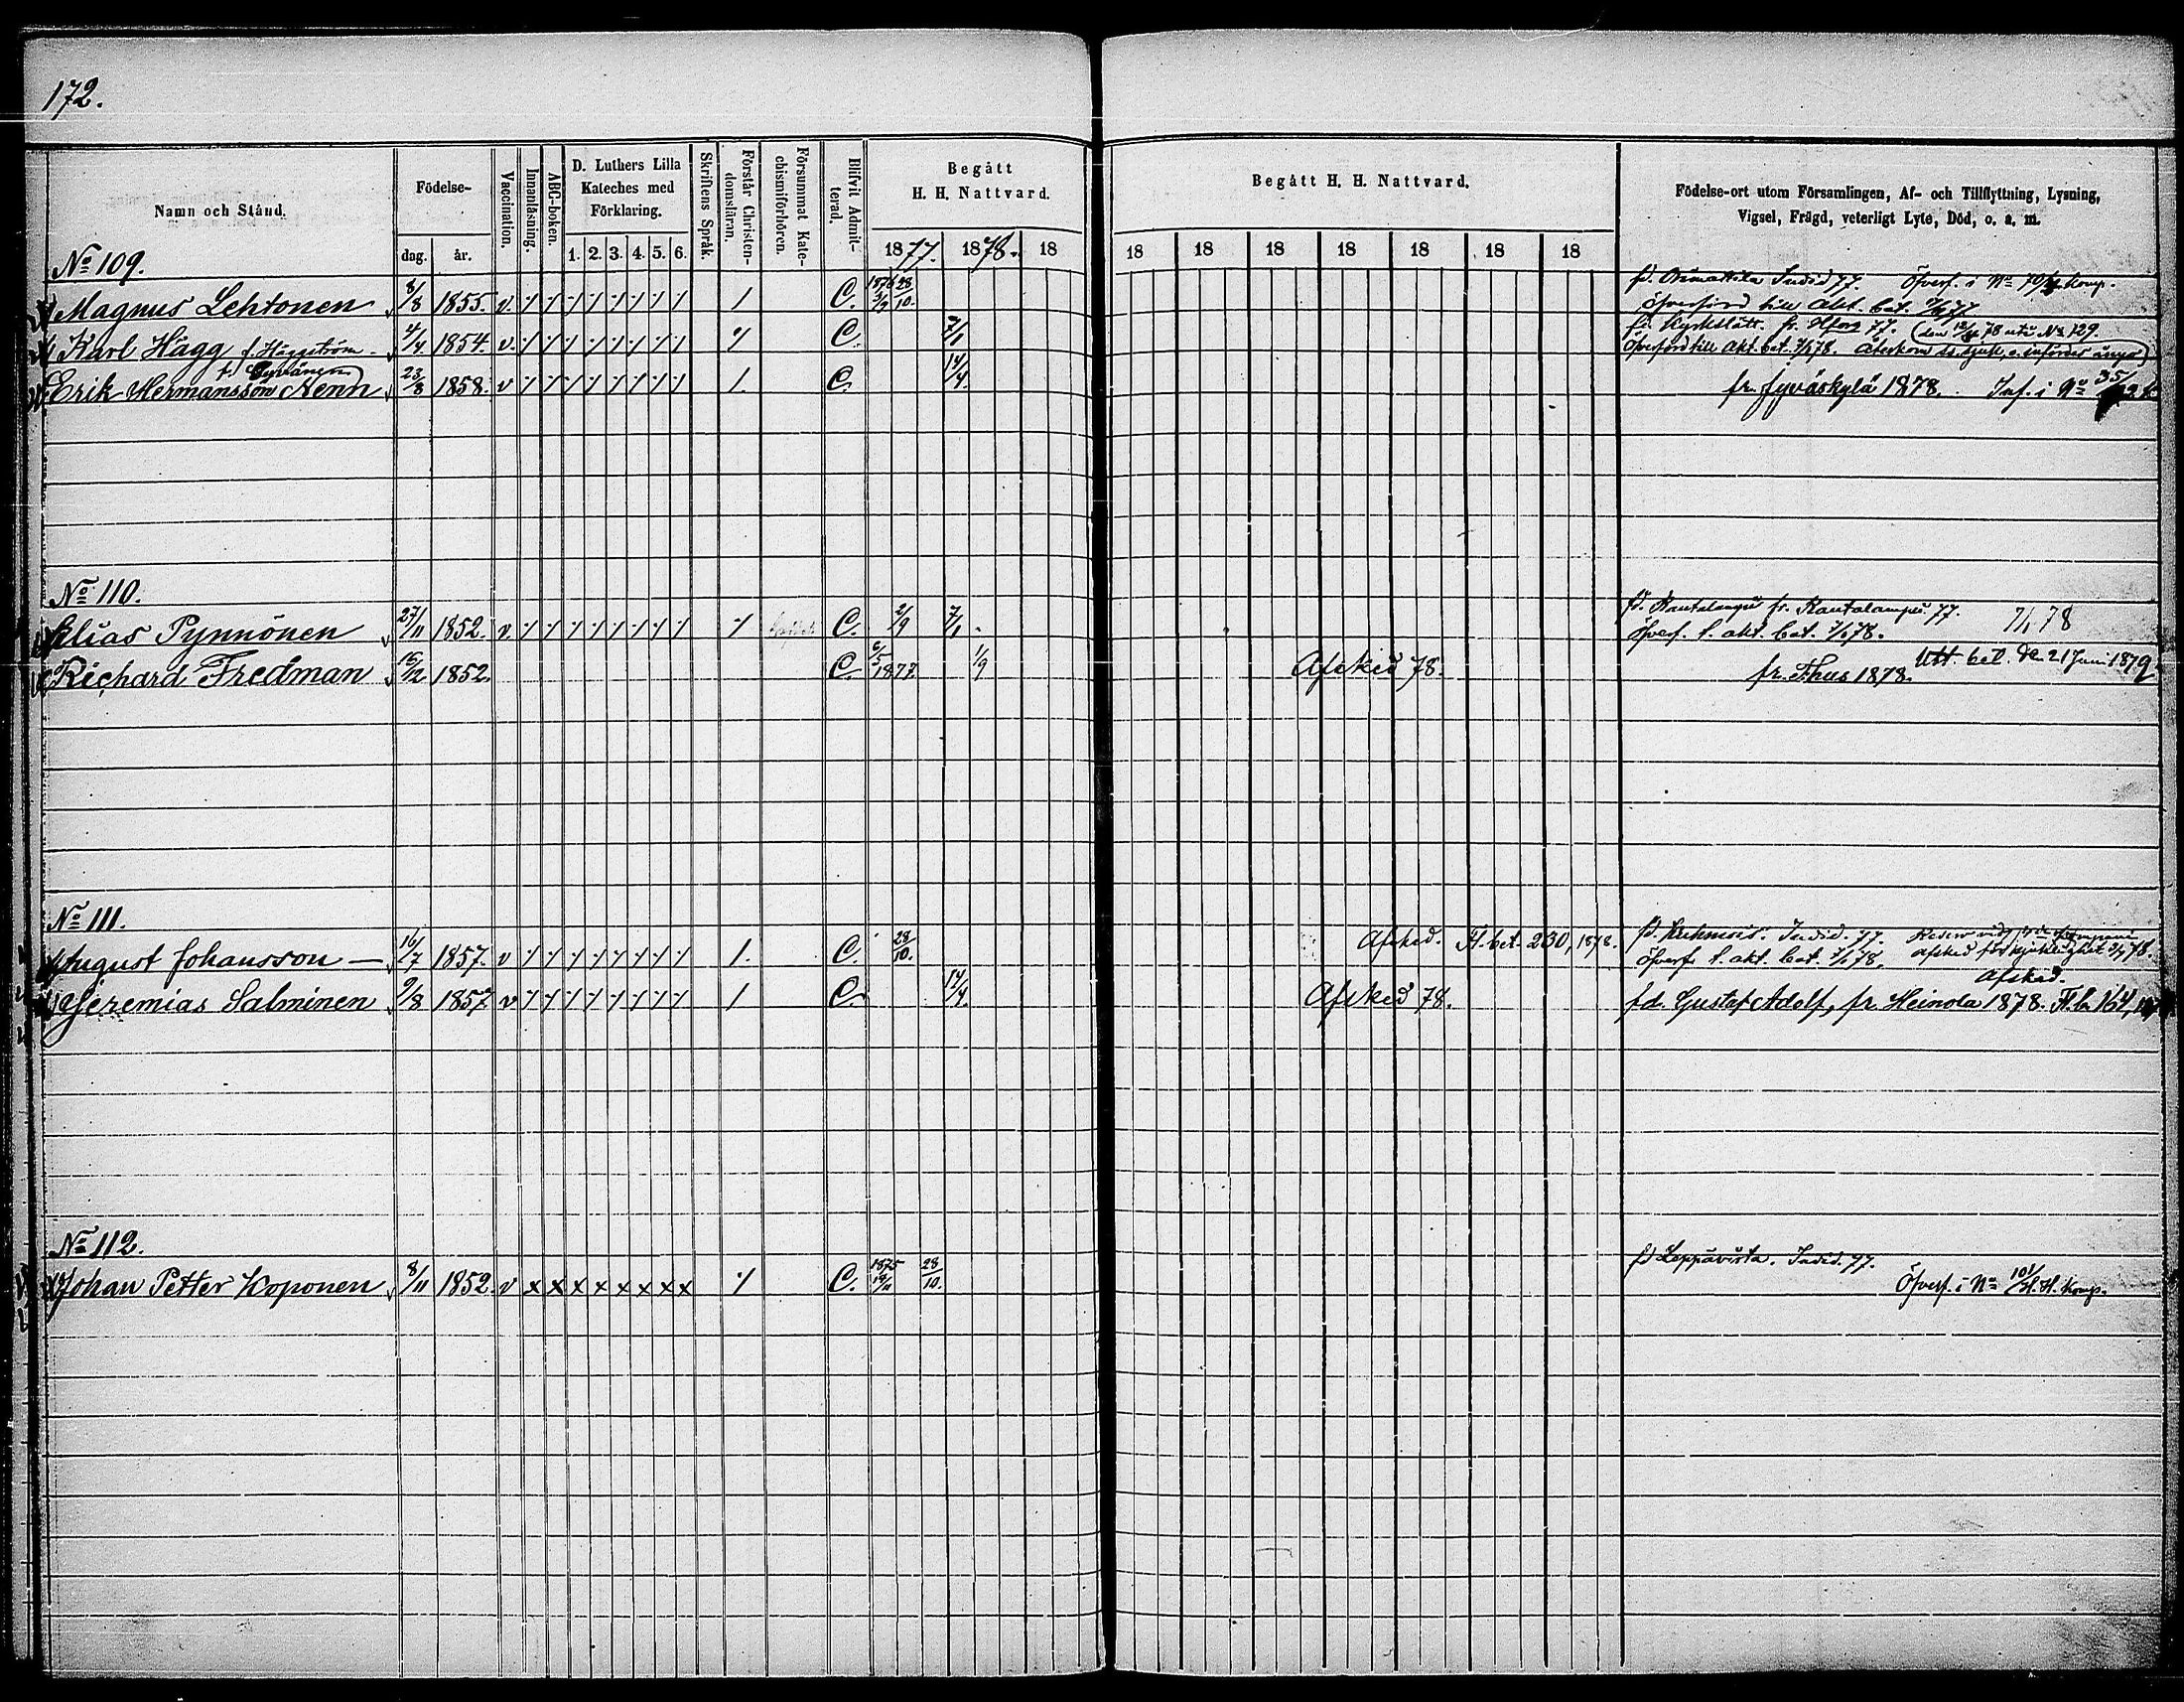 172.
Namn och Stånd.
Födelse-
dag. år.
Vaccination.
Innanläsning.
ABC-boken.
D. Luthers Lilla
Kateches med
Förklaring.
1. 2. 3. 4. 5. 6.
Skriftens Språk.
Förstår Christen-
domsläran.
Försummat Kate-
chismiförhören.
Blifvit Admit-
terad.
Begått
H. H. Nattvard.
1877. 1878. 18
Begått H. H. Nattvard.
18 18 18 18 18 18 18
Födelse-ort utom Församlingen, Af- och Tillflyttning, Lysning,
Vigsel, Frägd, veterligt Lyte, Död, o. s. m.
No 109.
Magnus Lehtonen 8/8 1855. v. C. 1876 3/9 28/10.
fd. Orimattila Indid 77. Öfverf. i No komp.
öfverförd till akt. bat.
Karl Hägg f. Häggström 4/4 1854. v. C. 7/1
fd. Kyrkslätt. fr. Hfors 77. 78 utu No 129.
Öfverförd till akt. bat. 7/1 78. Återkom ss sjuk, o. infördes ånyo
Erik Hermansson Nenn 23/8 1858. v C. 14/4.
fr. Jyväskylä 1878. Inf. i No
No 110.
Elias Pynnönen 27/11 1852. v. C. 2/9 7/1
fd. Rautalampi fr. Rautalampi 77. 7/1 78
öfverf. t. akt. bat. 7/1 78.
Richard Fredman 15/12 1852. C 6/5 1877. 1/9 Afsked 78.
fr. Fhus 1878. Utt. bet. den 21 Juni 1879
No 111.
August Johansson — 16/7 1857. v C. 28/10. Afsked. Fl. bet. 230, 1878.
fd. Kuhmois. Indid. 77.
öfverf. t. akt. bat. 7/1 78. afsked för sjuklighet
Jeremias Salminen 9/8 1857 v C. 14/4. Afsked 78. Afsked.
fd. Gustaf Adolf, fr. Heinola 1878. Fl. b. 164,
No 112.
Johan Petter Koponen 8/11 1852. v x x x x x x x x C. 1875 19/11 28/10.
fd Leppävirta. Indid. 77.
Öfverf. i No 101/H. H. komp.